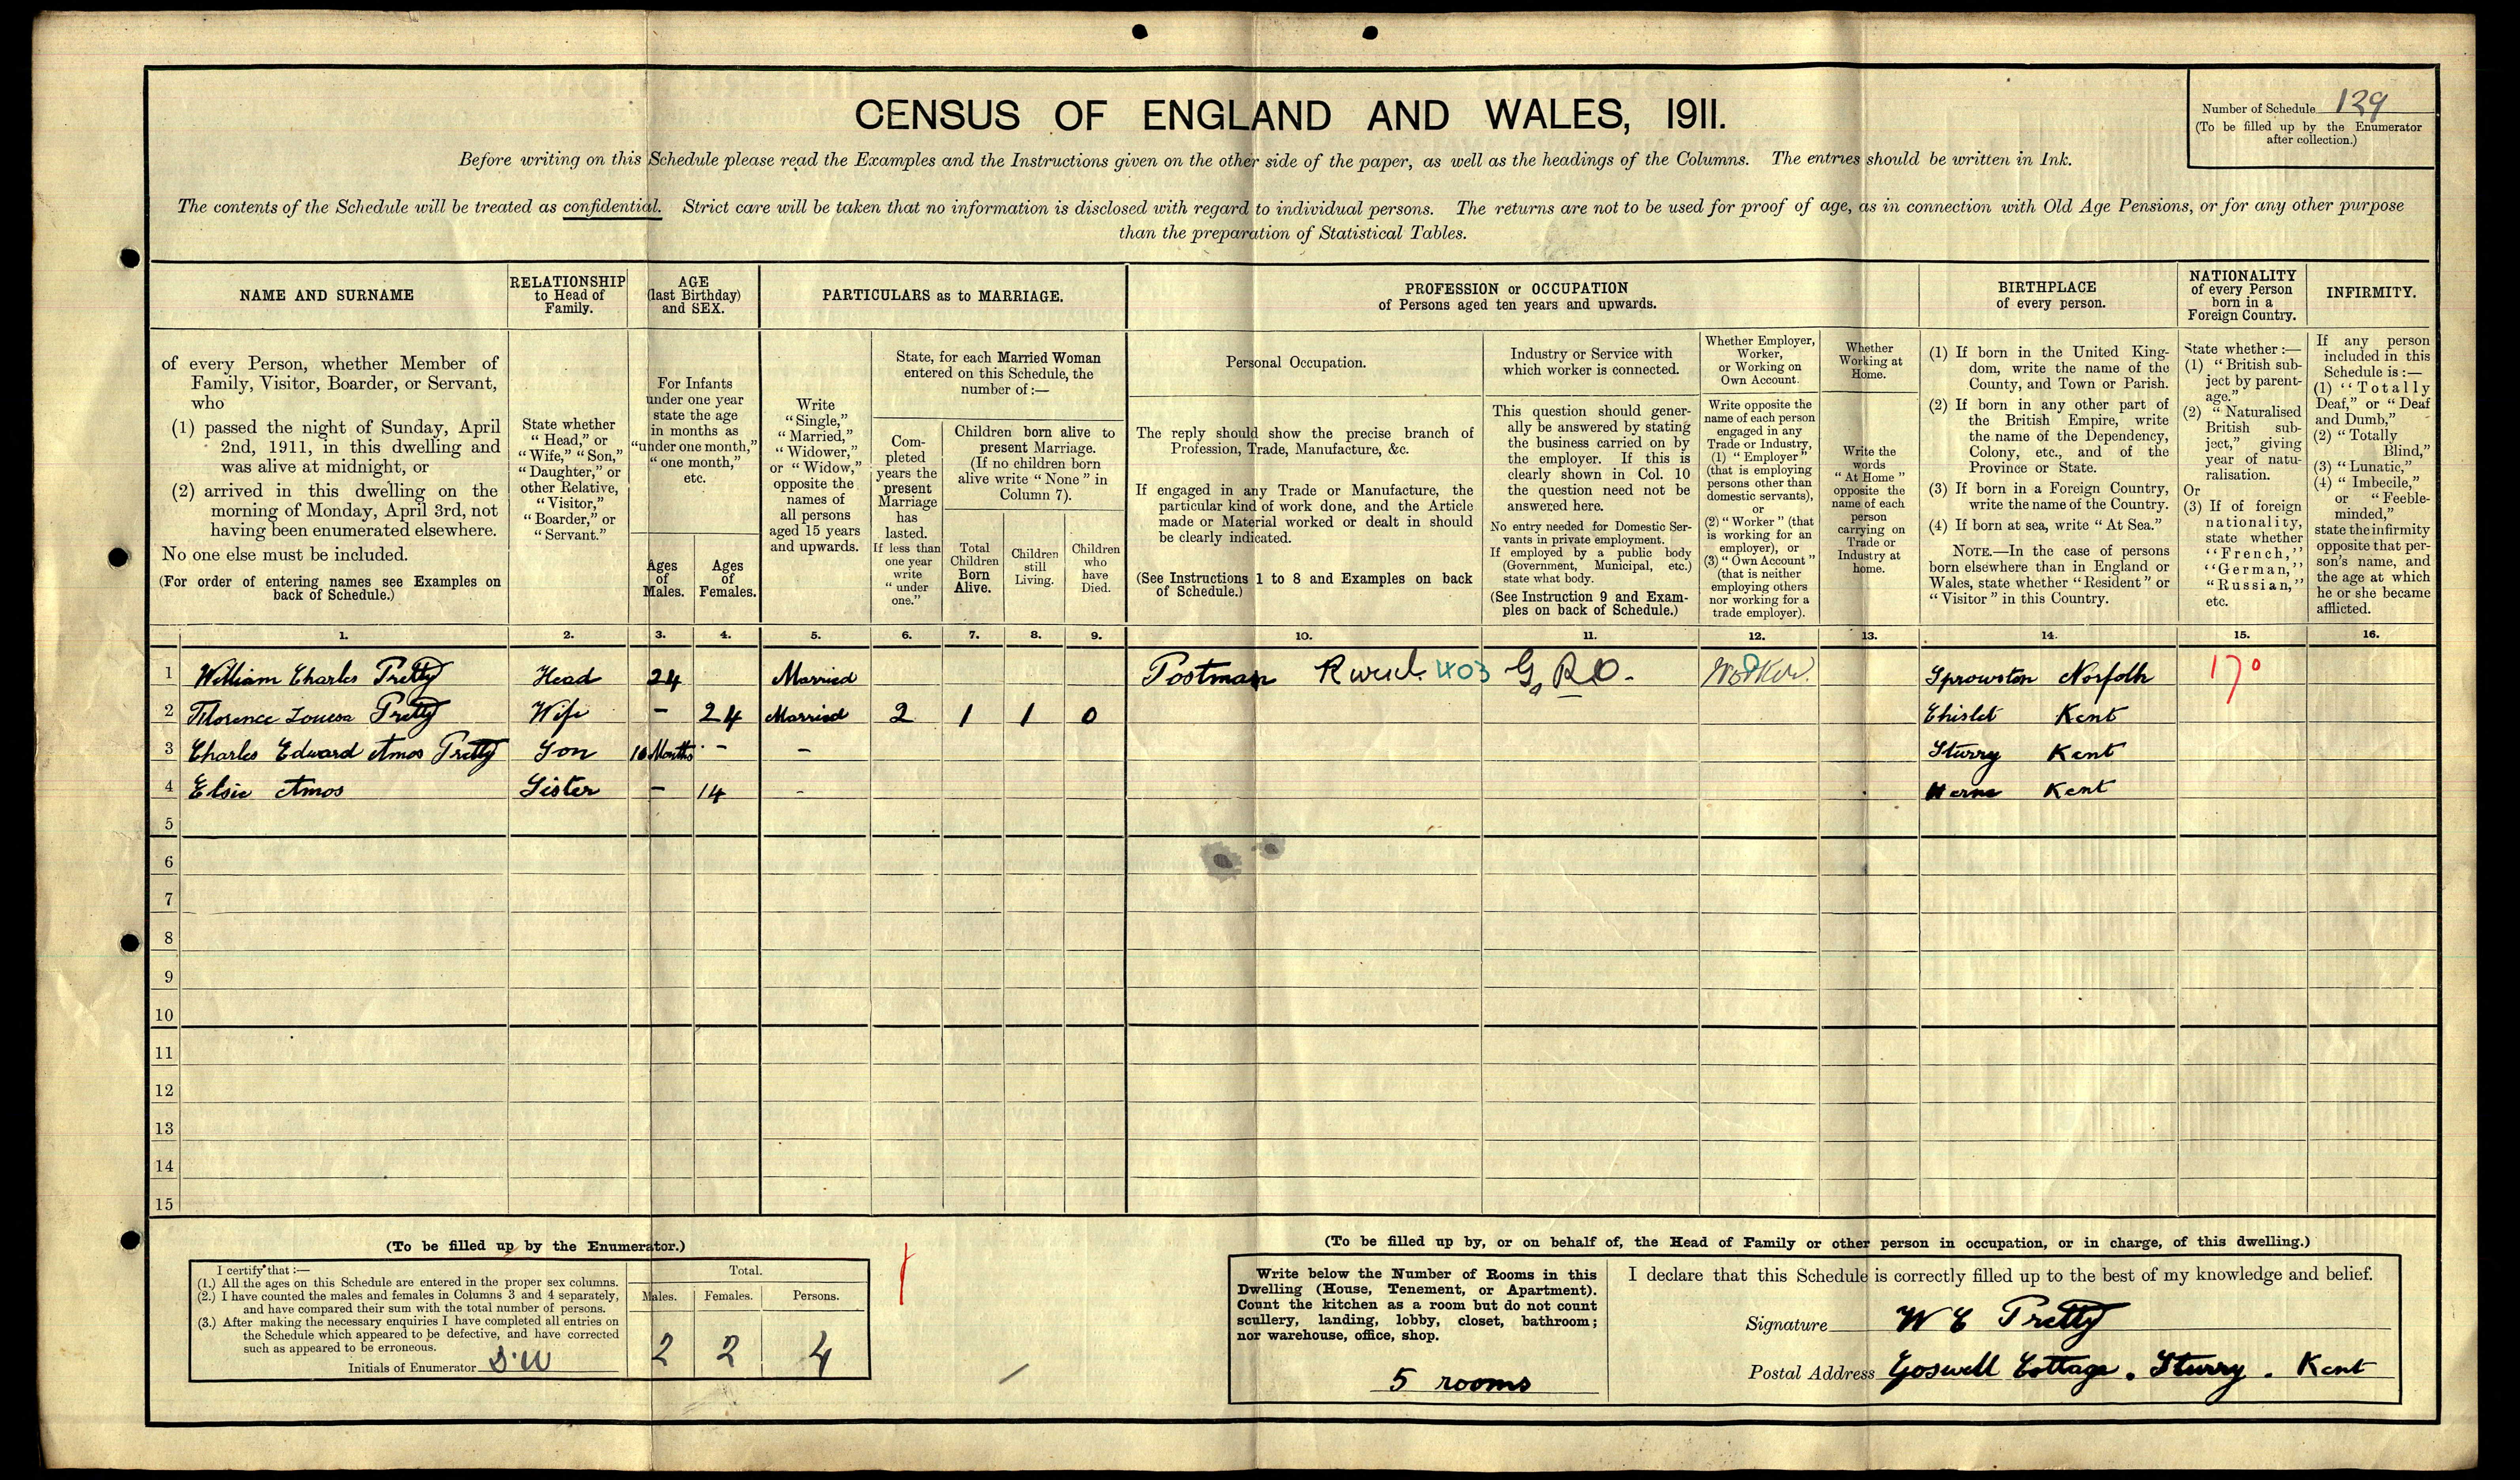 CENSUS OF ENGLAND AND WALES, 1911.
Number of Schedule 129
(To be filled up by the Enumerator
after collection.)
Before writing on this Schedule please read the Examples and the Instructions given on the other side of the paper, as well as the headings of the Columns. The entries should be written in Ink.
The contents of the Schedule will be treated as confidential. Strict care will be taken that no information is disclosed with regard to individual persons. The returns are not to be used for proof of age, as in connection with Old Age Pensions, or for any other purpose
than the preparation of Statistical Tables.
NAME AND SURNAME
of every Person, whether Member of
Family, Visitor, Boarder, or Servant,
who
(1) passed the night of Sunday, April
2nd, 1911, in this dwelling and
was alive at midnight, or
(2) arrived in this dwelling on the
morning of Monday, April 3rd, not
having been enumerated elsewhere.
No one else must be included.
(For order of entering names see Examples on
back of Schedule.)
RELATIONSHIP
to Head of
Family.
State whether
"Head," or
"Wife," "Son,"
"Daughter," or
other Relative,
"Visitor,"
"Boarder," or
"Servant."
AGE
(last Birthday)
and SEX.
For Infants
under one year
state the age
in months as
"under one month,"
"one month,"
etc.
Ages
of
Males.
Ages
of
Females.
PARTICULARS as to MARRIAGE.
Write
"Single,"
"Married,"
"Widower,"
or "Widow,"
opposite the
names of
all persons
aged 15 years
and upwards.
State, for each Married Woman
entered on this Schedule, the
number of :—
Com-
pleted
years the
present
Marriage
has
lasted.
If less than
one year
write
"under
one."
Children born alive to
present Marriage.
(If no children born
alive write "None" in
Column 7).
Total
Children
Born
Alive.
Children
still
Living.
Children
who
have
Died.
PROFESSION or OCCUPATION
of Persons aged ten years and upwards.
Personal Occupation.
The reply should show the precise branch of
Profession, Trade, Manufacture, &c.
If engaged in any Trade or Manufacture, the
particular kind of work done, and the Article
made or Material worked or dealt in should
be clearly indicated.
(See Instructions 1 to 8 and Examples on back
of Schedule.)
Industry or Service with
which worker is connected.
This question should gener-
ally be answered by stating
the business carried on by
the employer. If this is
clearly shown in Col. 10
the question need not be
answered here.
No entry needed for Domestic Ser-
vants in private employment.
If employed by a public body
(Government, Municipal, etc.)
state what body.
(See Instruction 9 and Exam-
ples on back of Schedule.)
Whether Employer,
Worker,
or Working on
Own Account.
Write opposite the
name of each person
engaged in any
Trade or Industry,
(1) "Employer"
(that is employing
persons other than
domestic servants),
or
(2) "Worker" (that
is working for an
employer), or
(3) "Own Account"
(that is neither
employing others
nor working for a
trade employer).
Whether
Working at
Home.
Write the
words
"At Home"
opposite the
name of each
person
carrying on
Trade or
Industry at
home.
BIRTHPLACE
of every person.
(1) If born in the United King-
dom, write the name of the
County, and Town or Parish.
(2) If born in any other part of
the British Empire, write
the name of the Dependency,
Colony, etc., and of the
Province or State.
(3) If born in a Foreign Country,
write the name of the Country.
(4) If born at sea, write "At Sea."
NOTE.—In the case of persons
born elsewhere than in England or
Wales, state whether "Resident" or
"Visitor" in this Country.
NATIONALITY
of every Person
born in a
Foreign Country.
State whether :—
(1) "British sub-
ject by parent-
age."
(2) "Naturalised
British sub-
ject," giving
year of natu-
ralisation.
Or
(3) If of foreign
nationality,
state whether
"French,"
"German,"
"Russian,"
etc.
INFIRMITY.
If any person
included in this
Schedule is :—
(1) "Totally
Deaf," or "Deaf
and Dumb,"
(2) "Totally
Blind,"
(3) "Lunatic,"
(4) "Imbecile,"
or "Feeble-
minded,"
state the infirmity
opposite that per-
son's name, and
the age at which
he or she became
afflicted.
1. 2. 3. 4. 5. 6. 7. 8. 9. 10. 11. 12. 13. 14. 15. 16.
1 William Charles Pretty Head 24 Married Postman Rural 403 G.P.O. Worker. Sprowston Norfolk 170
2 Florence Louesa Pretty Wife – 24 Married 2 1 1 0 Chislet Kent
3 Charles Edward Amos Pretty Son 10 Months – – Sturry Kent
4 Elsie Amos Sister – 14 - Herne Kent
5
6
7
8
9
10
11
12
13
14
15
(To be filled up by the Enumerator.)
I certify that :—
(1.) All the ages on this Schedule are entered in the proper sex columns.
(2.) I have counted the males and females in Columns 3 and 4 separately,
and have compared their sum with the total number of persons.
(3.) After making the necessary enquiries I have completed all entries on
the Schedule which appeared to be defective, and have corrected
such as appeared to be erroneous.
Initials of Enumerator S.W
Total.
Males. Females. Persons.
2 2 4
(To be filled up by, or on behalf of, the Head of Family or other person in occupation, or in charge, of this dwelling.)
Write below the Number of Rooms in this
Dwelling (House, Tenement, or Apartment).
Count the kitchen as a room but do not count
scullery, landing, lobby, closet, bathroom;
nor warehouse, office, shop.
5 rooms
I declare that this Schedule is correctly filled up to the best of my knowledge and belief.
Signature W C Pretty
Postal Address Goswell Cottage. Sturry. Kent